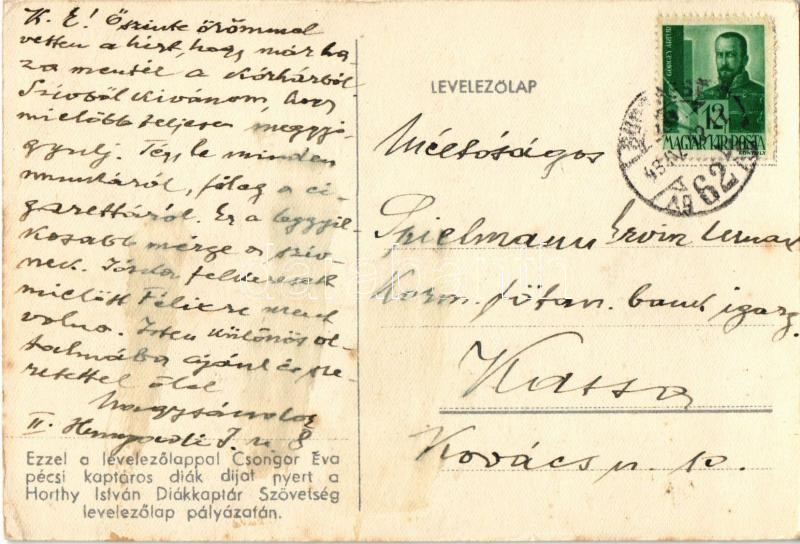 K. E! Őszinte örömmel
vettem a hírt, hogy már ha-
za mentél a kórházból
Szivből kivánom, hogy
mielőbb teljesen meggyó-
gyulj. Tégy le minden
munkáról, főleg a ci-
garettáról. Ez a leggyil-
kosabb mérge a sziv-
nek.
mielőtt Félixre
volna. Isten különös ol-
talmába ajánl és sze-
retettel ölel
II.
Ezzel a levelezőlappal Csongor Éva
pécsi kaptáros diák díjat nyert a
Horthy István Diákkaptár Szövetség
levelezőlap pályázatán.
LEVELEZŐLAP
GÖRGEY ARTÚR
12
MAGYAR KIR. POSTA
62
Méltóságos
Spielmann Ervin
Korm. főtan. bank igazg.
Kassa
Kovács u. 10.